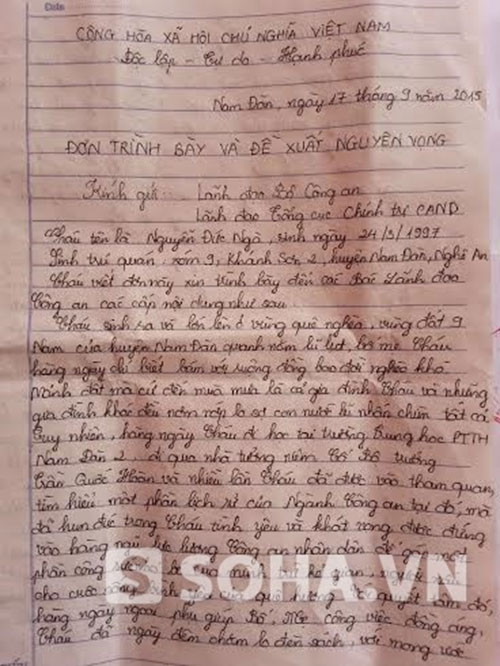 CỘNG HÒA XÃ HỘI CHỦ NGHĨA VIỆT NAM
Độc lập - Tự do - Hạnh phúc
Nam Đàn, ngày 17 tháng 9 năm 2015
ĐƠN TRÌNH BÀY VÀ ĐỀ XUẤT NGUYỆN VỌNG
Kính gửi: Lãnh đạo Bộ Công an
Lãnh đạo Tổng cục Chính trị CAND
Cháu tên là Nguyễn Đức Ngà, sinh ngày 24/5/1997
Sinh trú quán: xóm 9, Khánh Sơn 2, huyện Nam Đàn, Nghệ An
Cháu viết đơn này xin trình bày đến các Bác Lãnh đạo
Công an các cấp nội dung như sau
Cháu sinh ra và lớn lên ở vùng quê nghèo, vùng đất 9
Nam của huyện Nam Đàn quanh năm lũ lụt, bố mẹ Cháu
hàng ngày chỉ biết bám với ruộng đồng bao đời nghèo khó
Mảnh đất mà cứ đến mùa mưa là cả gia đình Cháu và những
gia đình khác đều nơm nớp lo sợ cơn nước lũ nhấn chìm tất cả
Tuy nhiên, hàng ngày Cháu đi học tại trường Trung học PTTH
Nam Đàn 2, đi qua nhà tưởng niệm Cố Bộ trưởng
Trần Quốc Hoàn và nhiều lần Cháu đã được vào tham quan,
tìm hiểu một phần lịch sử của Ngành Công an tại đó, mà
đã hun đúc trong Cháu tình yêu và khát vọng được đứng
vào hàng ngũ lực lượng Công an nhân dân để góp một
phần công sức
cho cuộc sống bình yên của quê hương. quyết tâm đó,
hàng ngày ngoài phụ giúp Bố, Mẹ công việc đồng áng,
Cháu đã ngày đêm chăm lo đèn sách, với mong ước
SOHA.VN